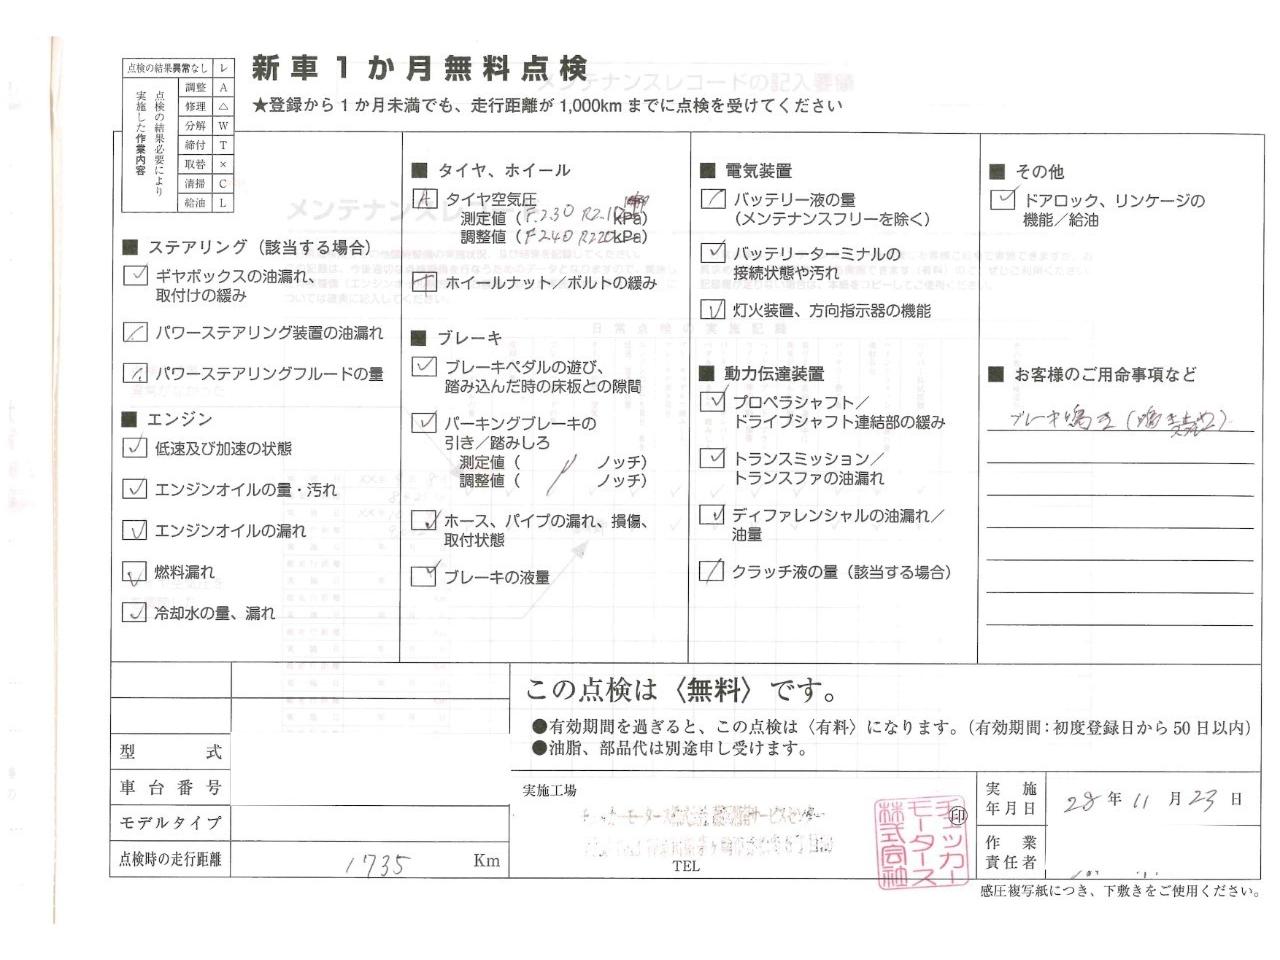 新車1か月無料点検
★登録から1か月未満でも、走行距離が1,000kmまでに点検を受けてください
点検の結果異常なし レ
点検の結果必要により
実施した作業内容
調整 A
修理 △
分解 W
締付 T
取替 ×
清掃 C
給油 L
■ ステアリング（該当する場合）
ギヤボックスの油漏れ、
取付けの緩み
パワーステアリング装置の油漏れ
パワーステアリングフルードの量
■ エンジン
低速及び加速の状態
エンジンオイルの量・汚れ
エンジンオイルの漏れ
燃料漏れ
冷却水の量、漏れ
■ タイヤ、ホイール
A タイヤ空気圧
測定値（F.230 R210 kPa）
調整値（F240 R220 kPa）
T ホイールナット／ボルトの緩み
■ ブレーキ
ブレーキペダルの遊び、
踏み込んだ時の床板との隙間
パーキングブレーキの
引き／踏みしろ
測定値（ ノッチ）
調整値（ ノッチ）
ホース、パイプの漏れ、損傷、
取付状態
ブレーキの液量
■ 電気装置
バッテリー液の量
（メンテナンスフリーを除く）
バッテリーターミナルの
接続状態や汚れ
灯火装置、方向指示器の機能
■ 動力伝達装置
プロペラシャフト／
ドライブシャフト連結部の緩み
トランスミッション／
トランスファの油漏れ
ディファレンシャルの油漏れ／
油量
クラッチ液の量（該当する場合）
■ その他
ドアロック、リンケージの
機能／給油
■ お客様のご用命事項など
ブレーキ鳴き
型式
車台番号
モデルタイプ
点検時の走行距離 1735 Km
この点検は〈無料〉です。
●有効期間を過ぎると、この点検は〈有料〉になります。（有効期間：初度登録日から50日以内）
●油脂、部品代は別途申し受けます。
実施工場
TEL
印
チェッカー
モータース
株式会社
実施
年月日
28年11月23日
作業
責任者
感圧複写紙につき、下敷きをご使用ください。